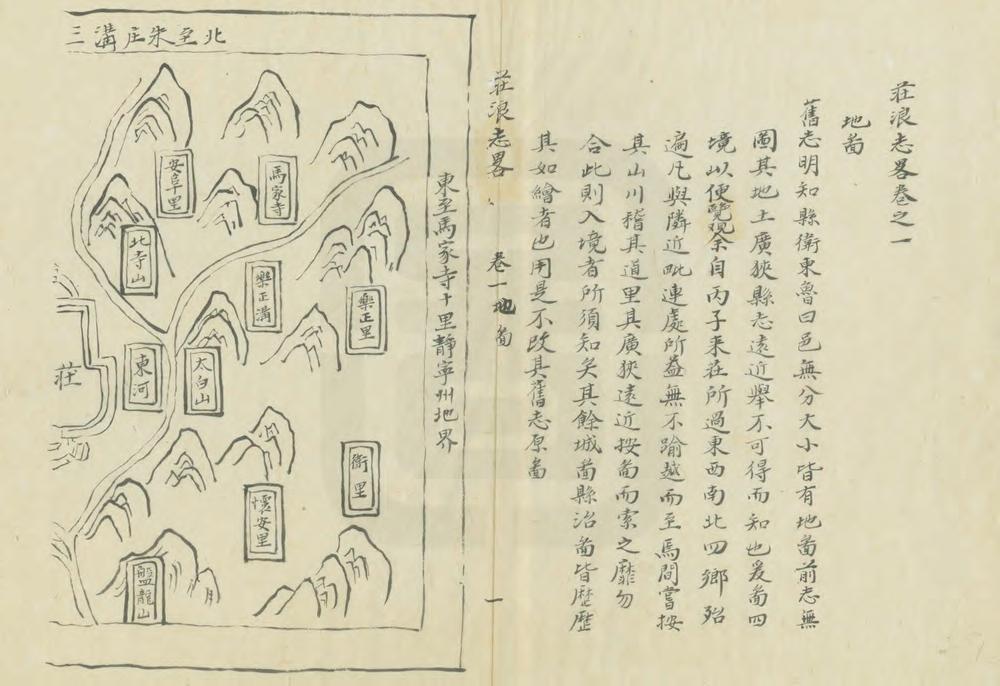 莊浪志畧卷之一
地啚
舊志明知縣衛東魯曰邑無分大小皆有地啚前志無
圖其地土廣狹縣志遠近舉不可得而知也爰啚四
境以便覽觀余自丙子来莊所過東西南北四鄉殆
遍凡與隣近毗連處所益無不踰越而至焉間嘗按
其山川稽其道里其廣狹遠近按啚而索之靡勿
合此則入境者所須知矣其餘城啚縣治啚皆歷歷
其如繪者也用是不改其舊志原啚
莊浪志畧
卷一 地啚
一
東至馬家寺十里靜寧州地界
北至朱庄溝三
馬家寺
安阜里
北寺山
樂正溝
樂正里
東河
太白山
莊
衛里
懷安里
盤龍山